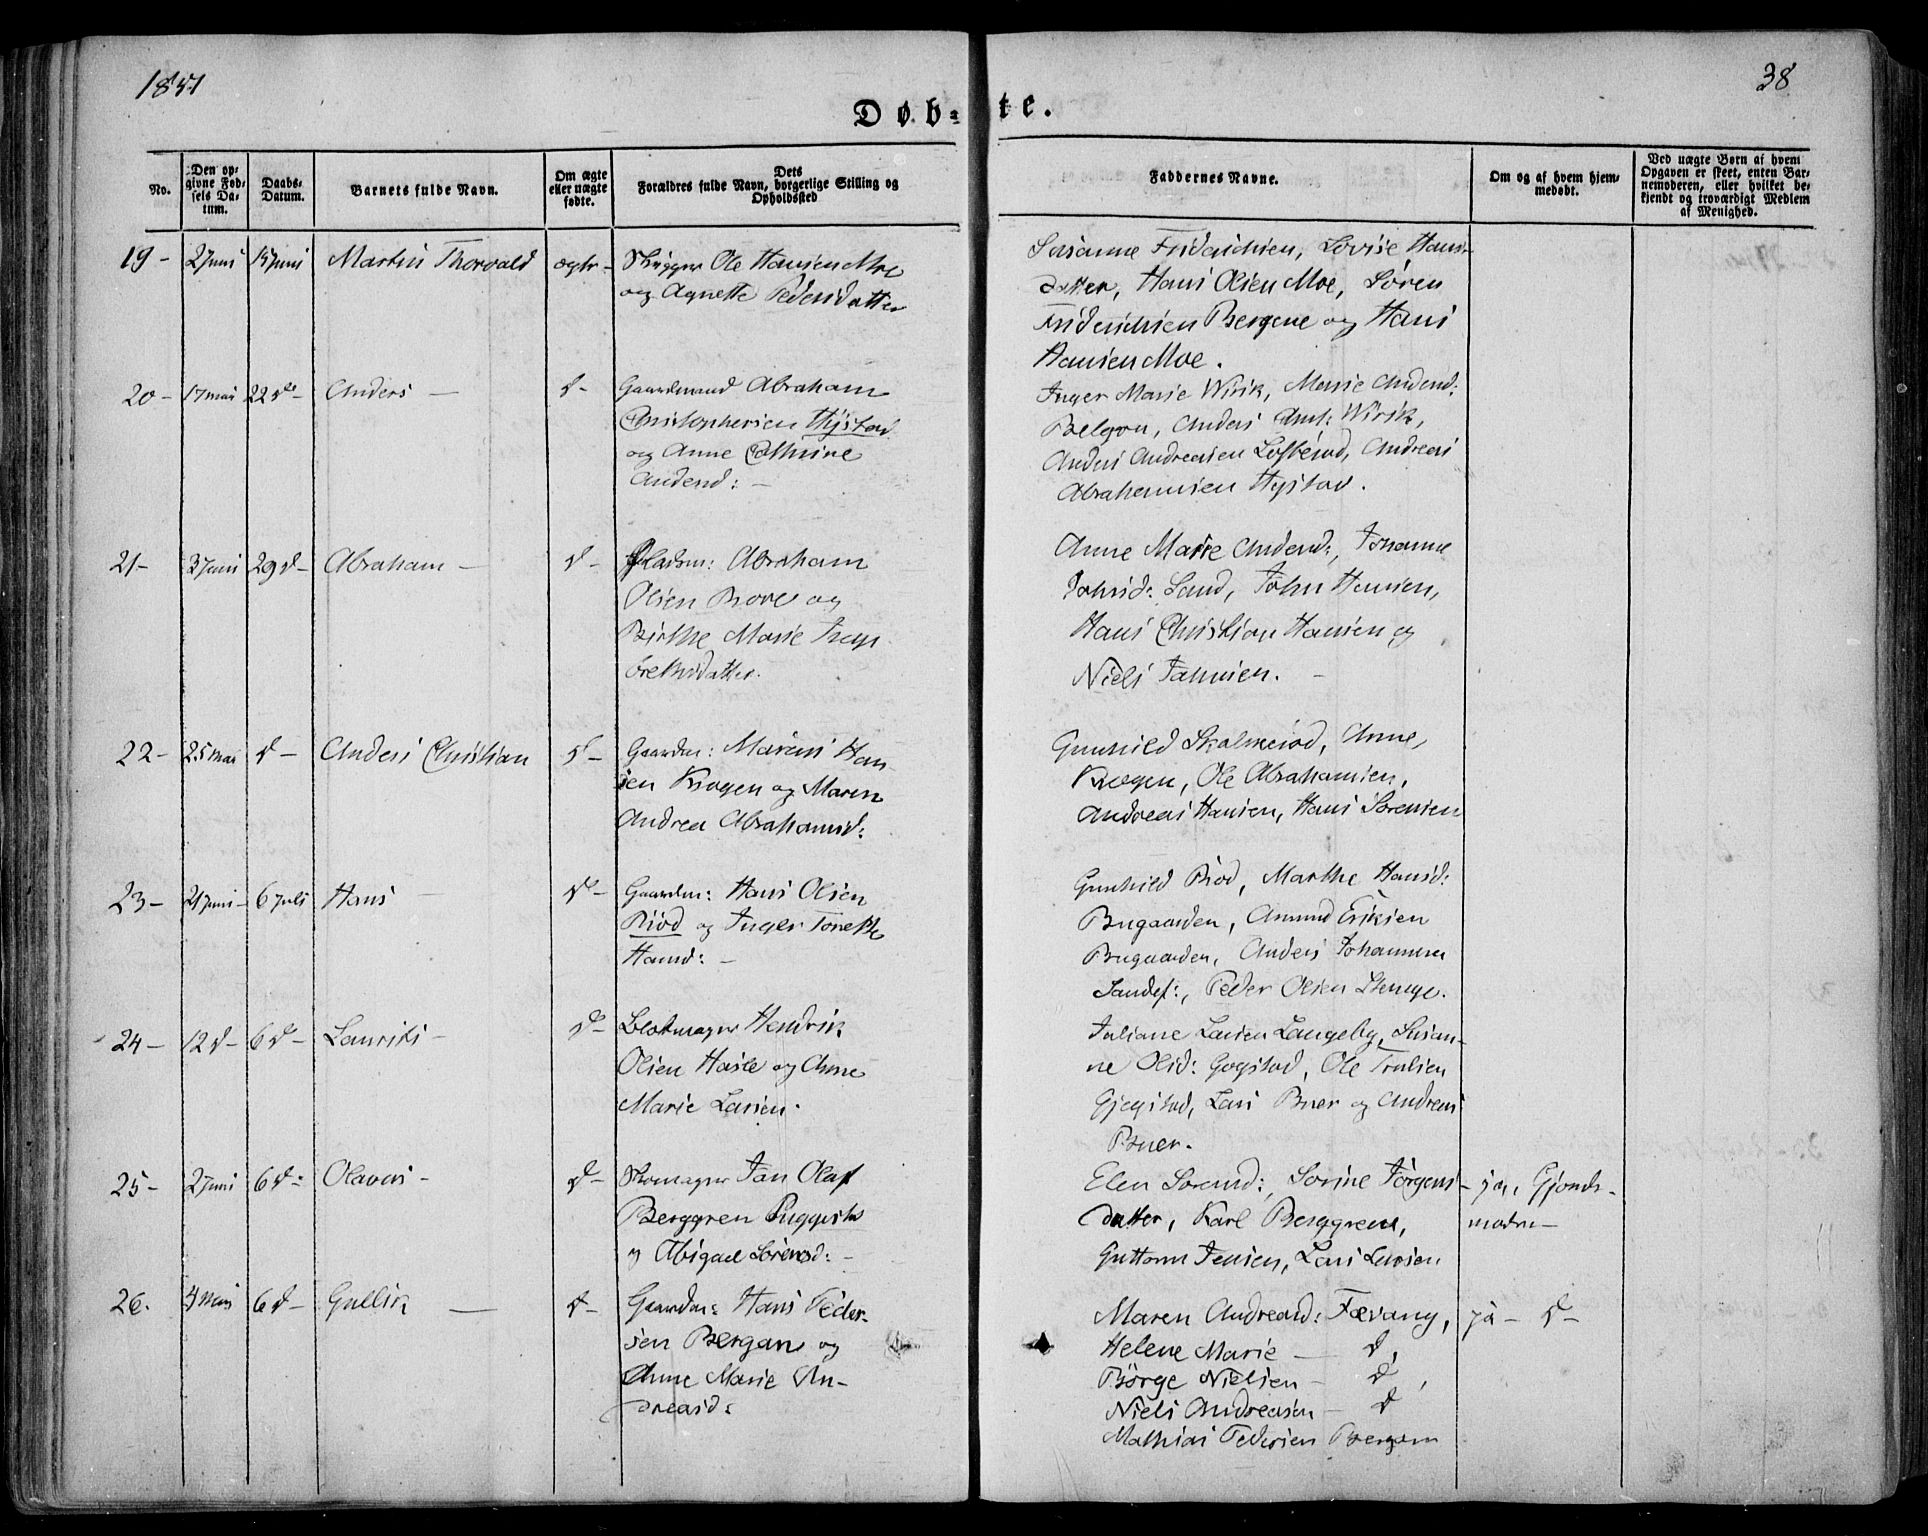 1851
38
Døb-te.
No.
Den op-
givne Fød-
sels Da-
tum.
Daabs-
Datum.
Barnets fulde Navn.
Om ægte
eller uægte
fødte.
Dets
Forældres fulde Navn, borgerlige Stilling og
Opholdssted
Faddernes Navne.
Om og af hvem hjem-
medøbt.
Ved uægte Børn af hvem
Opgaven er skeet, enten Bar-
nemoderen, eller hvilket be-
kjendt og troværdigt Medlem
af Menighed.
19 - 2 Juni 15 Juni Martin Thorvald ægte - Skipper Ole Hansen Moe
og Agnette Pedersdatter
Susanne Friderichsen, Lovise Hans-
datter, Hans Olsen Moe, Søren
Friderichsen Bergene og Hans
Hansen Moe.
20 - 17 Mai 22 d - Anders - d - Gaardmand Abraham
Christophersen Hystad
og Anne Cathrine
Andersd: -
Inger Marie Wirik, Marie Andersd:
Belgou, Anders Ant: Wirik,
Anders Andreasen Løfterød, Andreas
Abrahamsen Hystad.
21 - 3 Juni 29 d - Abraham - d - Pladsm: Abraham
Olsen Bove og
Birthe Marie Inge-
brethsdatter.
Anne Marie Andersd:, Johanne
Johnsd: Sand, John Hansen,
Hans Christian Hansen og
Niels Johnsen. -
22 - 25 Mai d - Anders Christian d - Gaardm: Marcus Han-
sen Krogen og Maren
Andrea Abrahamsd:
Gunhild Skalmerød, Anne
Krogen, Ole Abrahamsen,
Andreas Hansen, Hans Sørensen
23 - 21 Juni - 6 Juli Hans - d - Gaardm: Hans Olsen
Riød og Inger Torette
Hansd: -
Gunhild Riød, Marthe Hansd:
Bugaarden, Amund Eriksen
Bugaarden, Anders Johannesen
Sandef:, Peder Olsen Stenge.
24 - 12 d - 6 d - Laurits - d - Blokmager Hendrik
Olsen Hasle og Anne
Marie Larsen.
Juliane Larsen Langeby, Susan-
ne Olsd: Gogstad, Ole Trulsen
Gjogstad, Lars Buer og Andreas
Buer.
25 - 2 Juni 6 d: Olavus - d - Skomager Jan Olaf
Berggren
og Abigael Sørensd: -
Elen Sørensd:, Sorine Jørgens-
datter, Karl Berggren,
Guttorm Jensen, Lars Larsen.
ja, Gjords-
moder -
26. 4 Mai 6 d - Gullik - d - Gaardm: Hans Peder-
sen Bergan og
Anne Marie An-
dreasd:
Maren Andreasd: Fævang,
Helene Marie - d,
Børge Nielsen - d,
Niels Andreasen - d
Mathias Pedersen Bergan
ja - d -